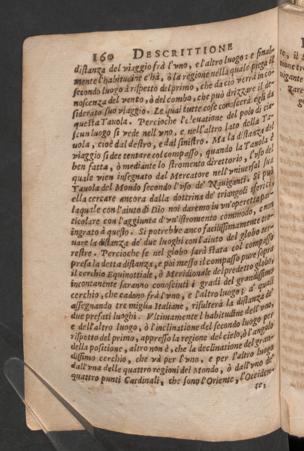 160 DESCRITTIONE
distanza del viaggio frà l'vno, e l'altro luogo: e final-
mente l'habitudine c'hà, ò la regione nella quale piega il
secondo luogo à rispetto del primo, che da ciò verrà in co-
noscenza del vento, ò del rombo, che può drizzare il de-
siderato suo viaggio. Le quai tutte cose conoscerà egli da
questa Tauola. Percioche l'eleuatione del polo di cia-
scun luogo si vede nell'vno, e nell'altro lato della Ta-
uola, cioè dal destro, e dal sinistro. Ma la distanza del
viaggio si dee tentare col compasso, quando la Tauola è
ben fatta, ò mediante lo stromento direttorio, l'vso del
quale vien insegnato dal Mercatore nell'vniversal sua
Tauola del Mondo secondo l'vso de' Nauiganti. Si può
ella cercare ancora dalla dottrina de' triangoli sferici,
la quale con l'aiuto di Dio noi daremo in vn'operetta par-
ticolare con l'aggiunta d'vn'istromento commodo, e non
ingrato à questo. Si potrebbe anco facilissimamente tro-
uare la distanza de' due luoghi con l'aiuto del globo ter-
restre. Percioche se nel globo sarà stata col compasso
presa la detta distanza, e poi messo il compasso pure sopra
il cerchio Equinottiale, ò Meridionale del predetto globo,
incontanente saranno conosciuti i gradi del grandissimo
cerchio, che cadono frà l'vno, e l'altro luogo: à quali
assegnando tre miglia Italiane, risulterà la distanza de'
due prefati luoghi. Vltimamente l'habitudine dell'vno
e dell'altro luogo, ò l'inclinatione del secondo luogo per
rispetto del primo, appresso la regione del cielo, ò l'angolo
della positione, altro non è, che la declinatione del gran-
dissimo cerchio, che và per l'vno, e per l'altro luogo
dall'vna delle quattro regioni del Mondo, ò dall'vno de'
quattro punti Cardinali, che sono l'Oriente, l'Occiden-
te;